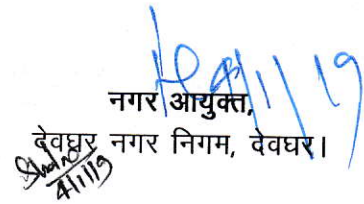 4/1/19
नगर आयुक्त,
देवघर नगर निगम, देवघर।
4/1/19